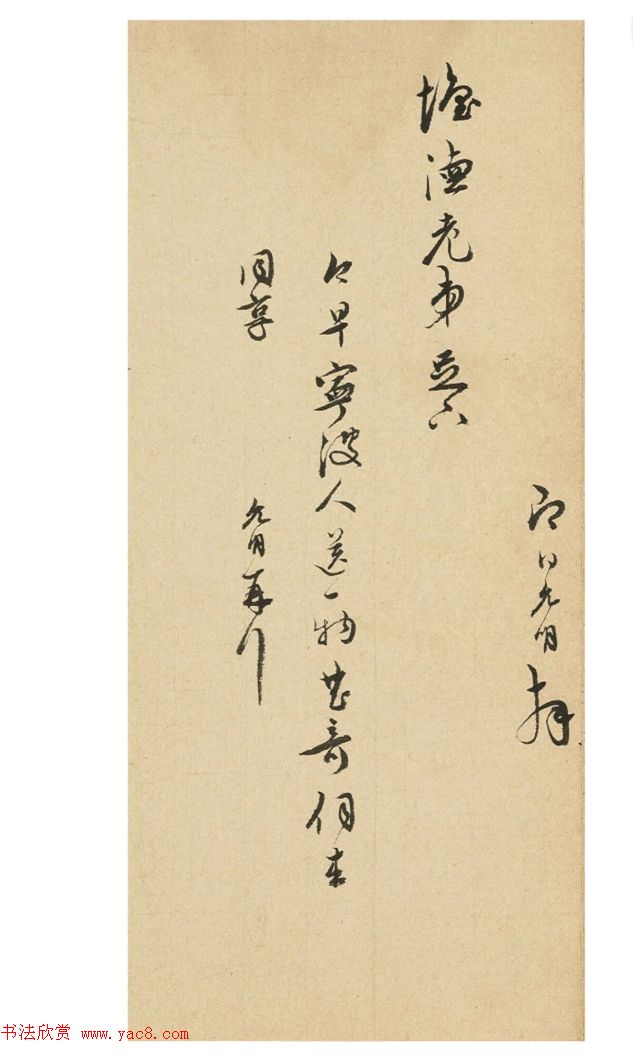 即日允明拜
老弟足下
今早寧波人送一物甚奇伺來
同享
允明再行
书法欣赏 www.yac8.com